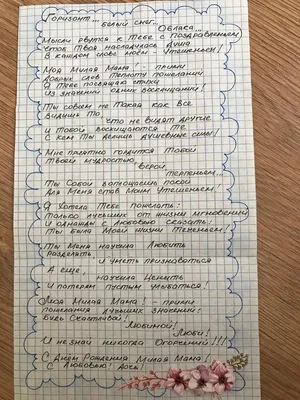 Горизонт...
Белый снег...
Облака...
Мысли рвутся к Тебе с Поздравленьем
Чтоб Твоя насладилась Душа
В каждом слове моём - Утешеньем!
Моя Милая Мама! - прими
Добрых слов Теплоту пожеланий
Я Тебе посвящаю стихи
Из значений одних восклицаний!
Ты совсем не Такая как Все
Видишь То, что не видят другие
И Тобой восхищаются Те
С кем Ты делишь душевные силы!
Мне приятно гордится Тобой
Твоей мудростью,
Верой,
Терпеньем...
Ты Собой воплощаешь покой
Для Меня став Моим Утешеньем!
Я Хотела Тебе пожелать:
Только лучших от жизни мгновений
И однажды с Любовью сказать:
Ты была Моей Жизни
Ты Меня научила Любить
Разделять,
и уметь признаваться
А ещё,
научила Ценить
И потерям пустым улыбаться!
Моя Милая Мама! - прими
Пожелания лучших значений:
Будь Счастливой!
Любимой!
Люби!
И не знай никогда Огорчений!!!
С Днём Рождения Милая Мама!
С Любовью!